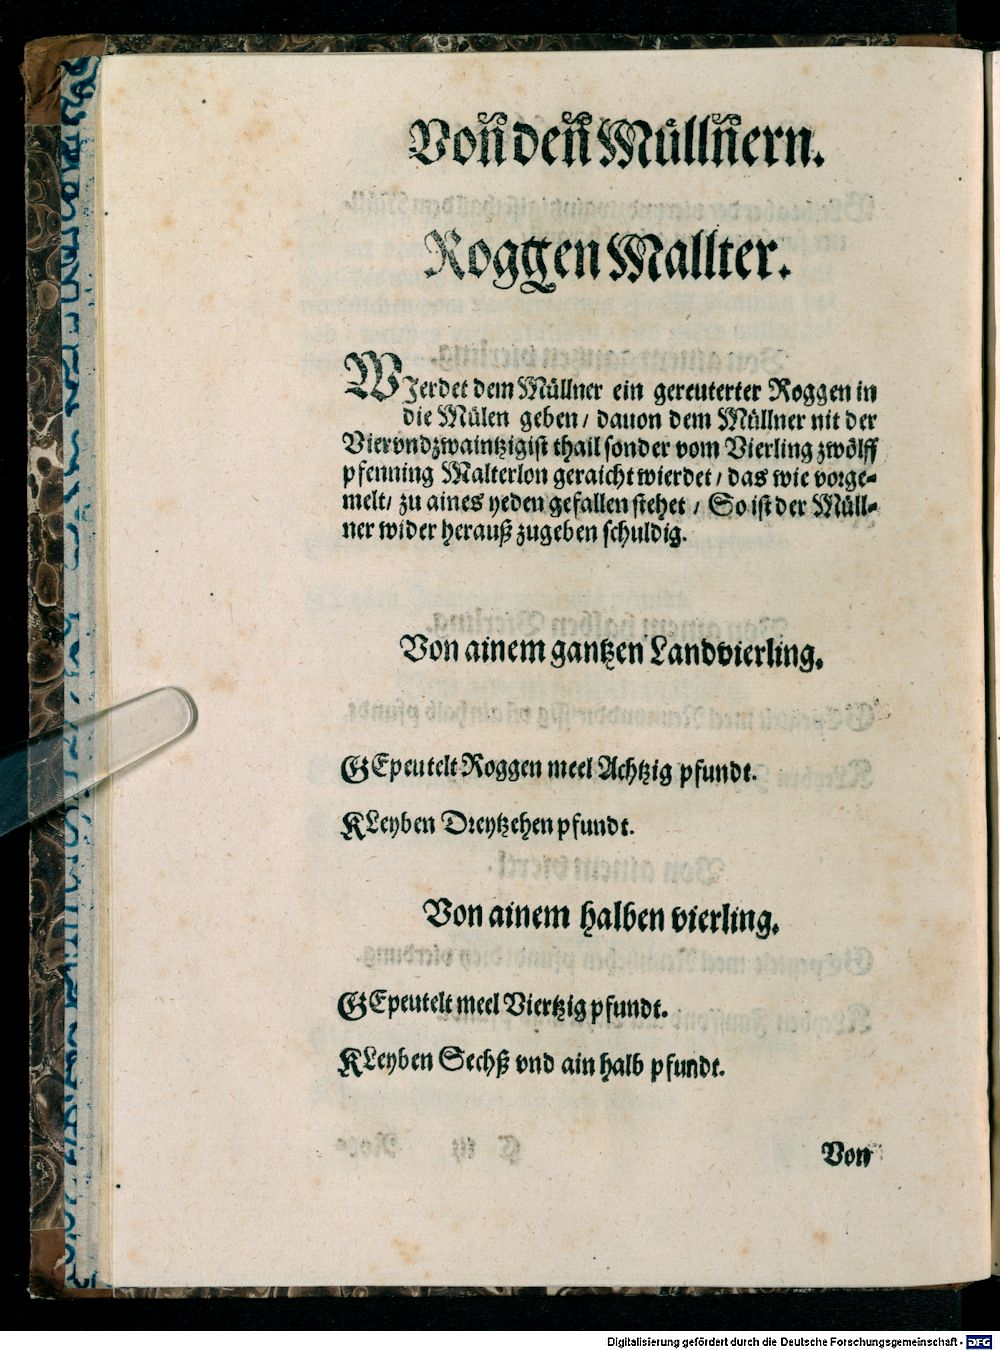 Von den Müllnern.
Roggen Mallter.
WJerdet dem Müllner ein gereuterter Roggen in
die Mülen geben / dauon dem Müllner nit der
Viervndzwaintzigist thail sonder vom Vierling zwölff
pfenning Malterlon geraicht wierdet / das wie vorge-
melt / zu aines yeden gefallen stehet / So ist der Müll-
ner wider herauß zugeben schuldig.
Von ainem gantzen Landvierling.
GEpeutelt Roggen meel Achtzig pfundt.
KLeyben Dreytzehen pfundt.
Von ainem halben vierling.
GEpeutelt meel Viertzig pfundt.
KLeyben Sechß vnd ain halb pfundt.
Von
Digitalisierung gefördert durch die Deutsche Forschungsgemeinschaft - DFG